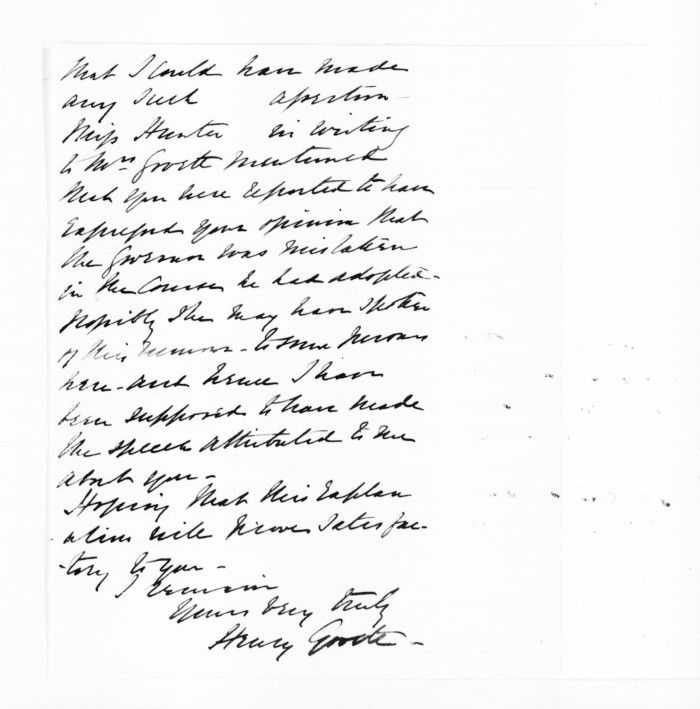 that I could have made
any such assertion -
Miss Hunter in writing
to Mrs. Goett mentioned
that you were reported to have
expressed your opinion that
the Governor was mistaken
in the Course he had adopted -
Possibly she may have spoken
of this rumour - to some persons
here - and hence I have
been supposed to have made
the speech attributed to me
about you -
Hoping that this Explan
ation will prove Satisfac-
-tory to you -
I remain
Yours very truly
Henry